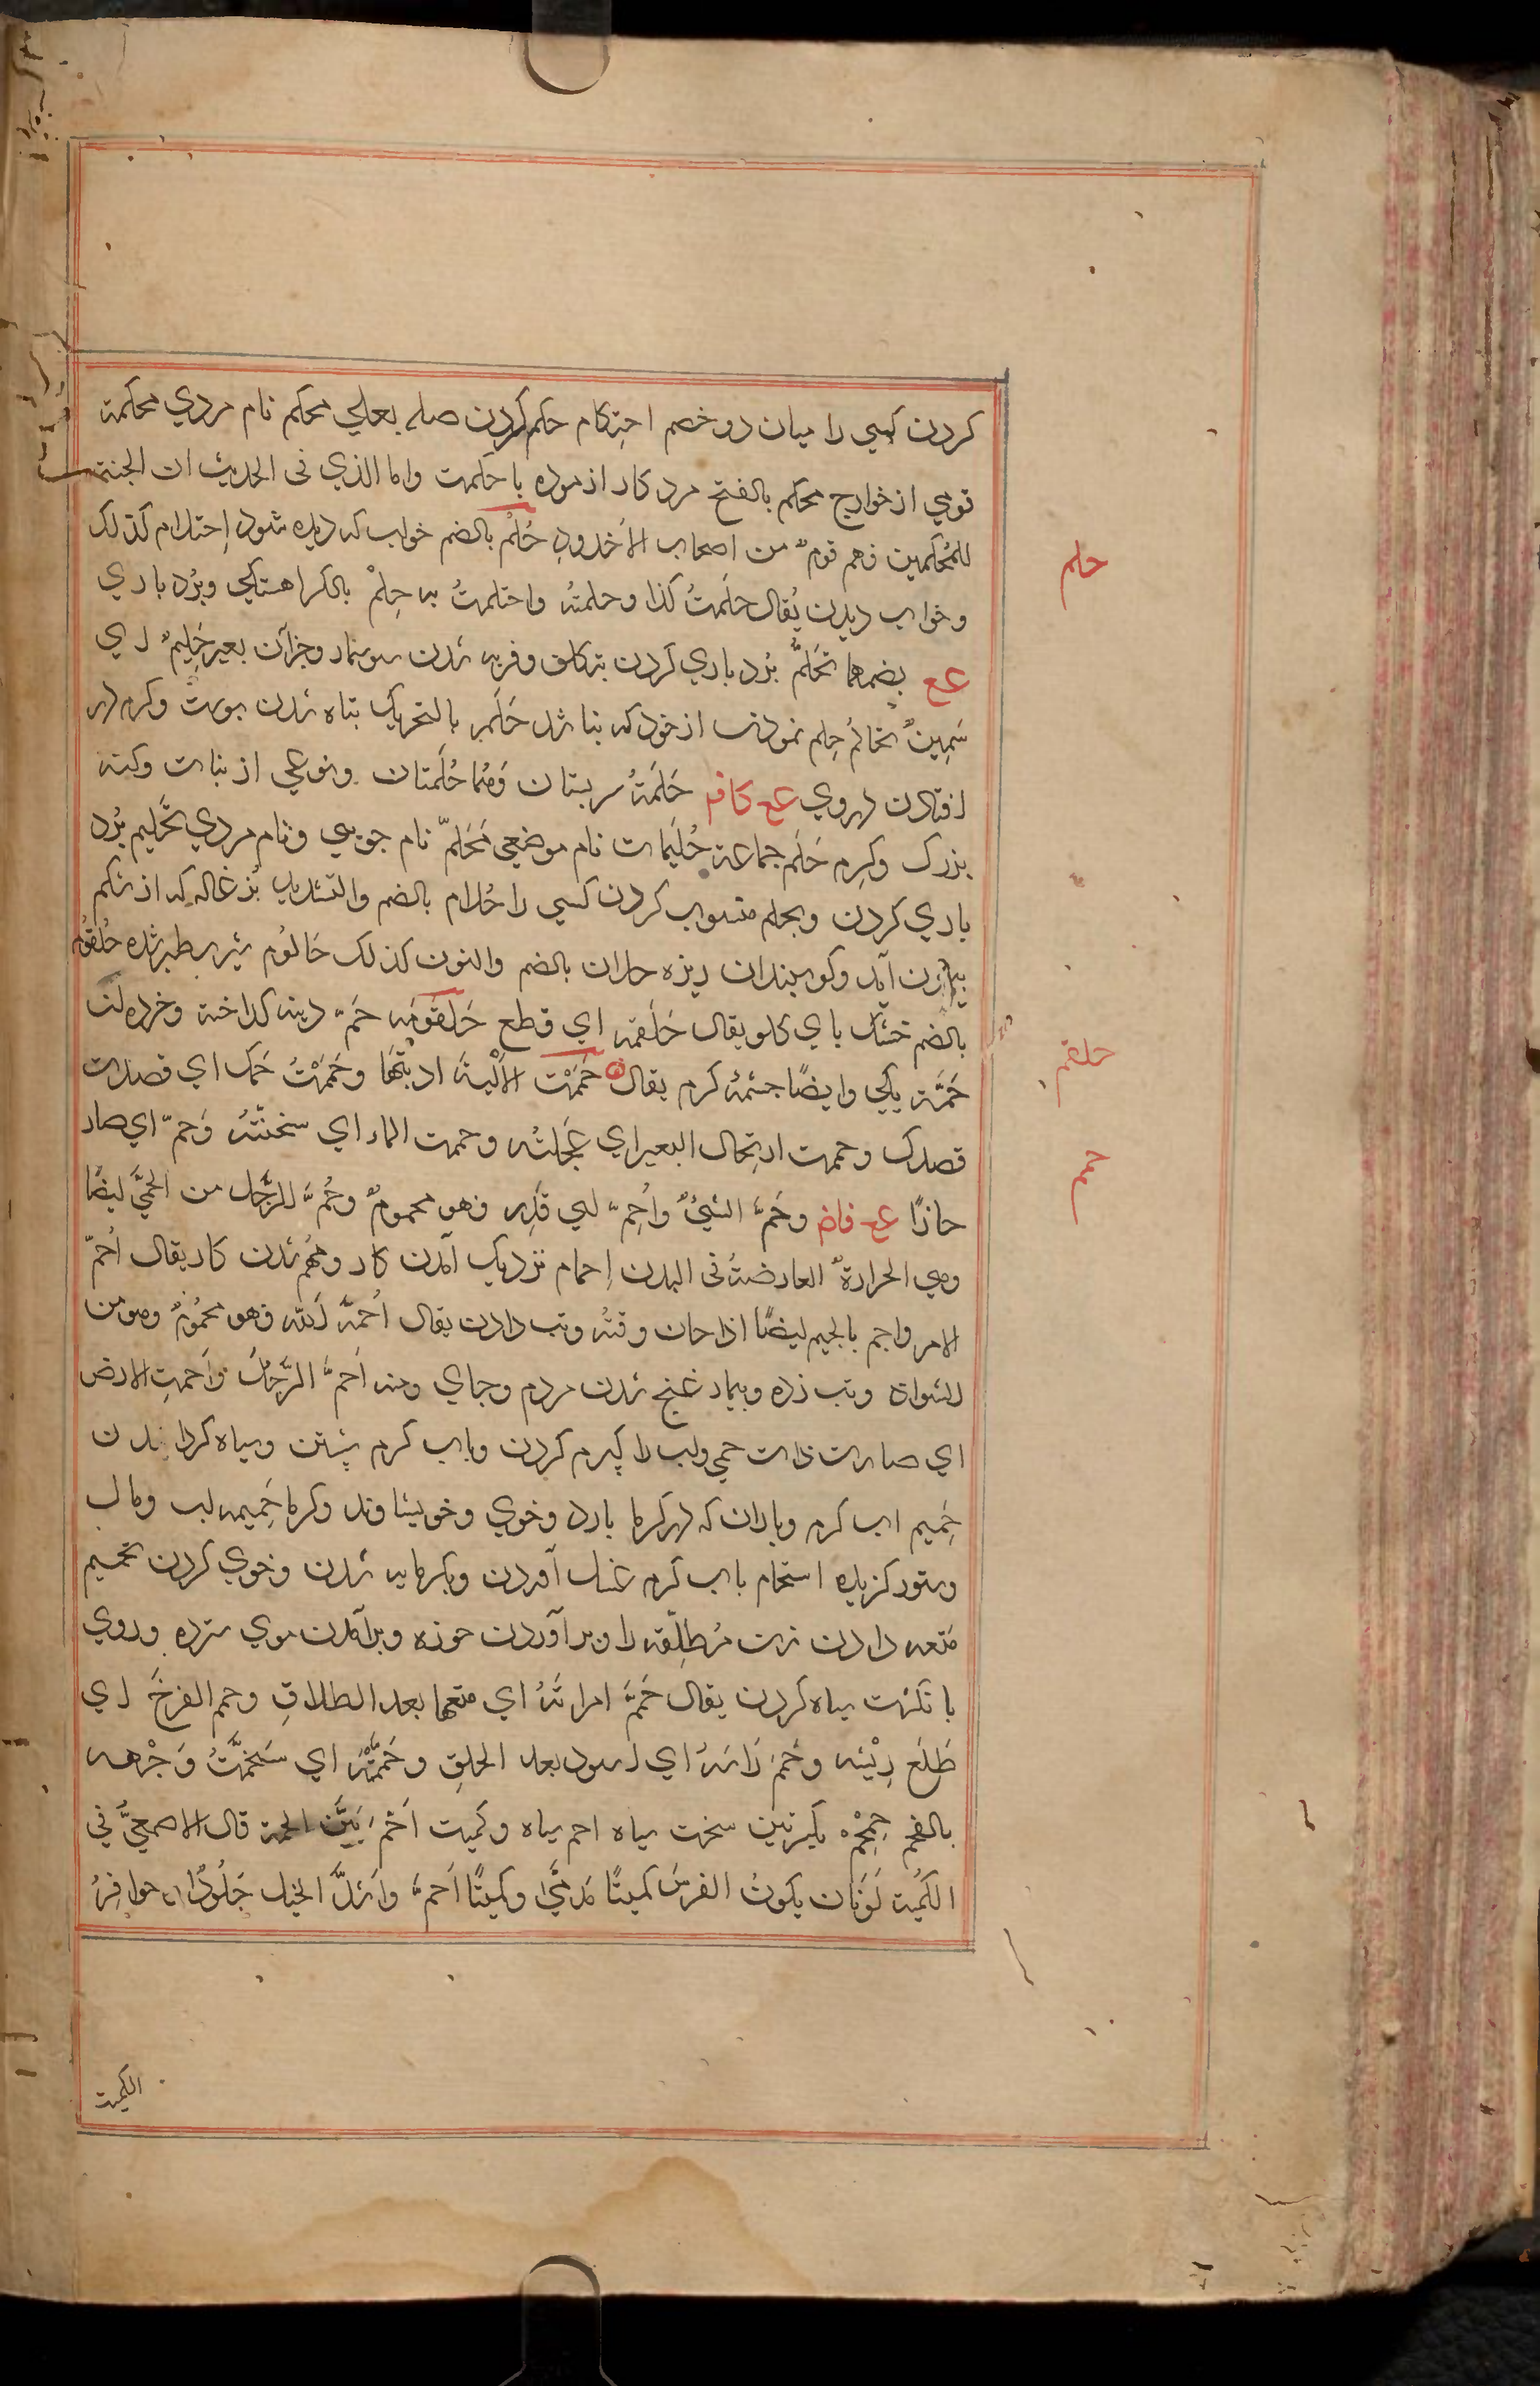 کردن کسی را میان دو خصم احتکام حکم کردن صله بعلی محکم نام مردي محکمة
قومي از خوارج محکم بالفتح مرد کار ازموده با حکمت واما الذي فی الحدیث ان الجنة
للمُحَکمین فهم قومٌ من اصحاب الاُخدودِ حُلُمْ بالضم خواب که دیده شود اِحتلام کذلک
حلم
وخواب دیدن یُقال حَلَمتُ کذا وحلمتُه واحتلمتُ به حِلمْ بالکسر اهستکی وبُرد باري
عع بضمهما تَحَلُّم بُرد باري کردن بتکلف وفربه شدن سوسمار وجزآن بعیر حَلِیمٌ اي
سَمِینٌ تَحالُم حِلم نمودن از خود که نباشد حَلَم بالتحریک تباه شدن پوست وکرم در
افتادن دروي عع کاف حَلَمَةُ سر پستان وَهُما حُلَمتان ونوعی از نبات وکنه
بزرک وکرم حَلَم جماعة حُلَیمات نام موضعی مُحَلَّم نام جویی ونام مردي تَحلیم بُرد
باري کردن وبحلم منسوب کردن کسی را حُلام بالضم والتشدید بُزغاله که از شکم
بیرون آید وکوسپندان ریزه حلان بالضم والنون کذلک حَالُوم شیر سطبر شده حُلقُوم
بالضم خشک ناي کلو یقال حَلقَمَه اي قطع حَلقُومَه حَمّ دنبه کداخته وخرده
حلقم
حَمَّة یکی وایضًا چشمهٔ کرم یقال حَمَمْت الاَلْیةَ اذبتُهَا وحَمَمْتُ حَمَّک اي قصدت
قصدک وحممت ارتحال البعیر اي عجلتُه وحممت الماء اي سخنتُه وَحمّ اي صار
حمم
حارًا عع فاض وحُمَّ الشئُ واُحِمّ اي قُدِّر فهو محمومٌ وحُمَّ الرَّجُل من الحُمَّی ایضًا
وهی الحرارةُ العارضةُ فی البدن اِحمام نزدیک آمدن کار ومُهم شدن کار یقال اُحِمّ
الامر واجم بالجیم ایضًا اذا حان وقتُه وتب دادن یقال اَحَمَّه الله فهو محمُومٌ وهو من
الشواذ وتب زده وبیمار غنج شدن مردم وجاي ومنه اَحَمَّ الرَّجُلُ وَاَحمتِ الارض
اي صارت ذات حمی واب را کرم کردن وباب کرم شستن وسیاه کردانیدن
حَمِیم اب کرم وباران که در کرما بارد وخوي وخویشاوند وکرما حَمِیمه اب ومال
وستور کزیده استحمام باب کرم غسل آوردن وبکرمابه شدن وخوي کردن تحمیم
مُتعه دادن زن مُطلّقه را وبر آوردن جوزه وبرآمدن موي سترده وروي
بانکشت سیاه کردن یقال حَمَّ امراتَهُ اي متعها بعد الطلاقِ وحمم الفرخَ اي
طَلَعَ رِیْشه وحَمّمَ رَاسَهُ اي اسود بعد الحلقِ وحَمَّمْتُه اي سَخَّمْتُ وَجْهه
بالفحم حِمْحِمْ بکسرتین سخت سیاه احم سیاه وکمیت اَحَمّ بَیّن الحمة قال الاصمعیُّ فی
الکُمَیة لَوْنَان یکونُ الفرسُ کمیتًا مُدَمَّیً وکمیتًا اَحَمَّ وَاَشدُّ الخیل جُلُودًا وحوافِرُ
الکمیت